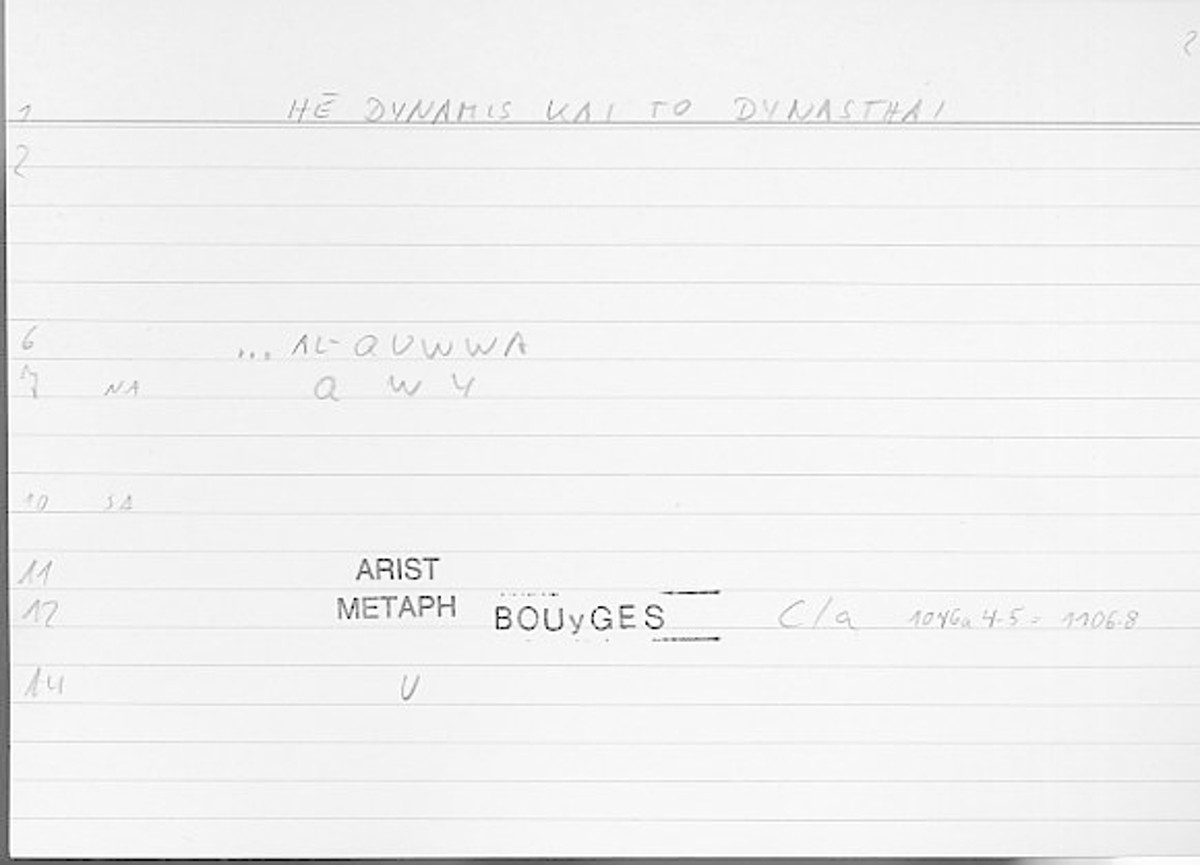 2
1 HĒ DYNAMIS KAI TO DYNASTHAI
2
6 ... AL-QUWWA
7 NA Q W Y
10 SA
11 ARIST
12 METAPH BOUyGES C/a 1046a 4-5 = 1106.8
14 U